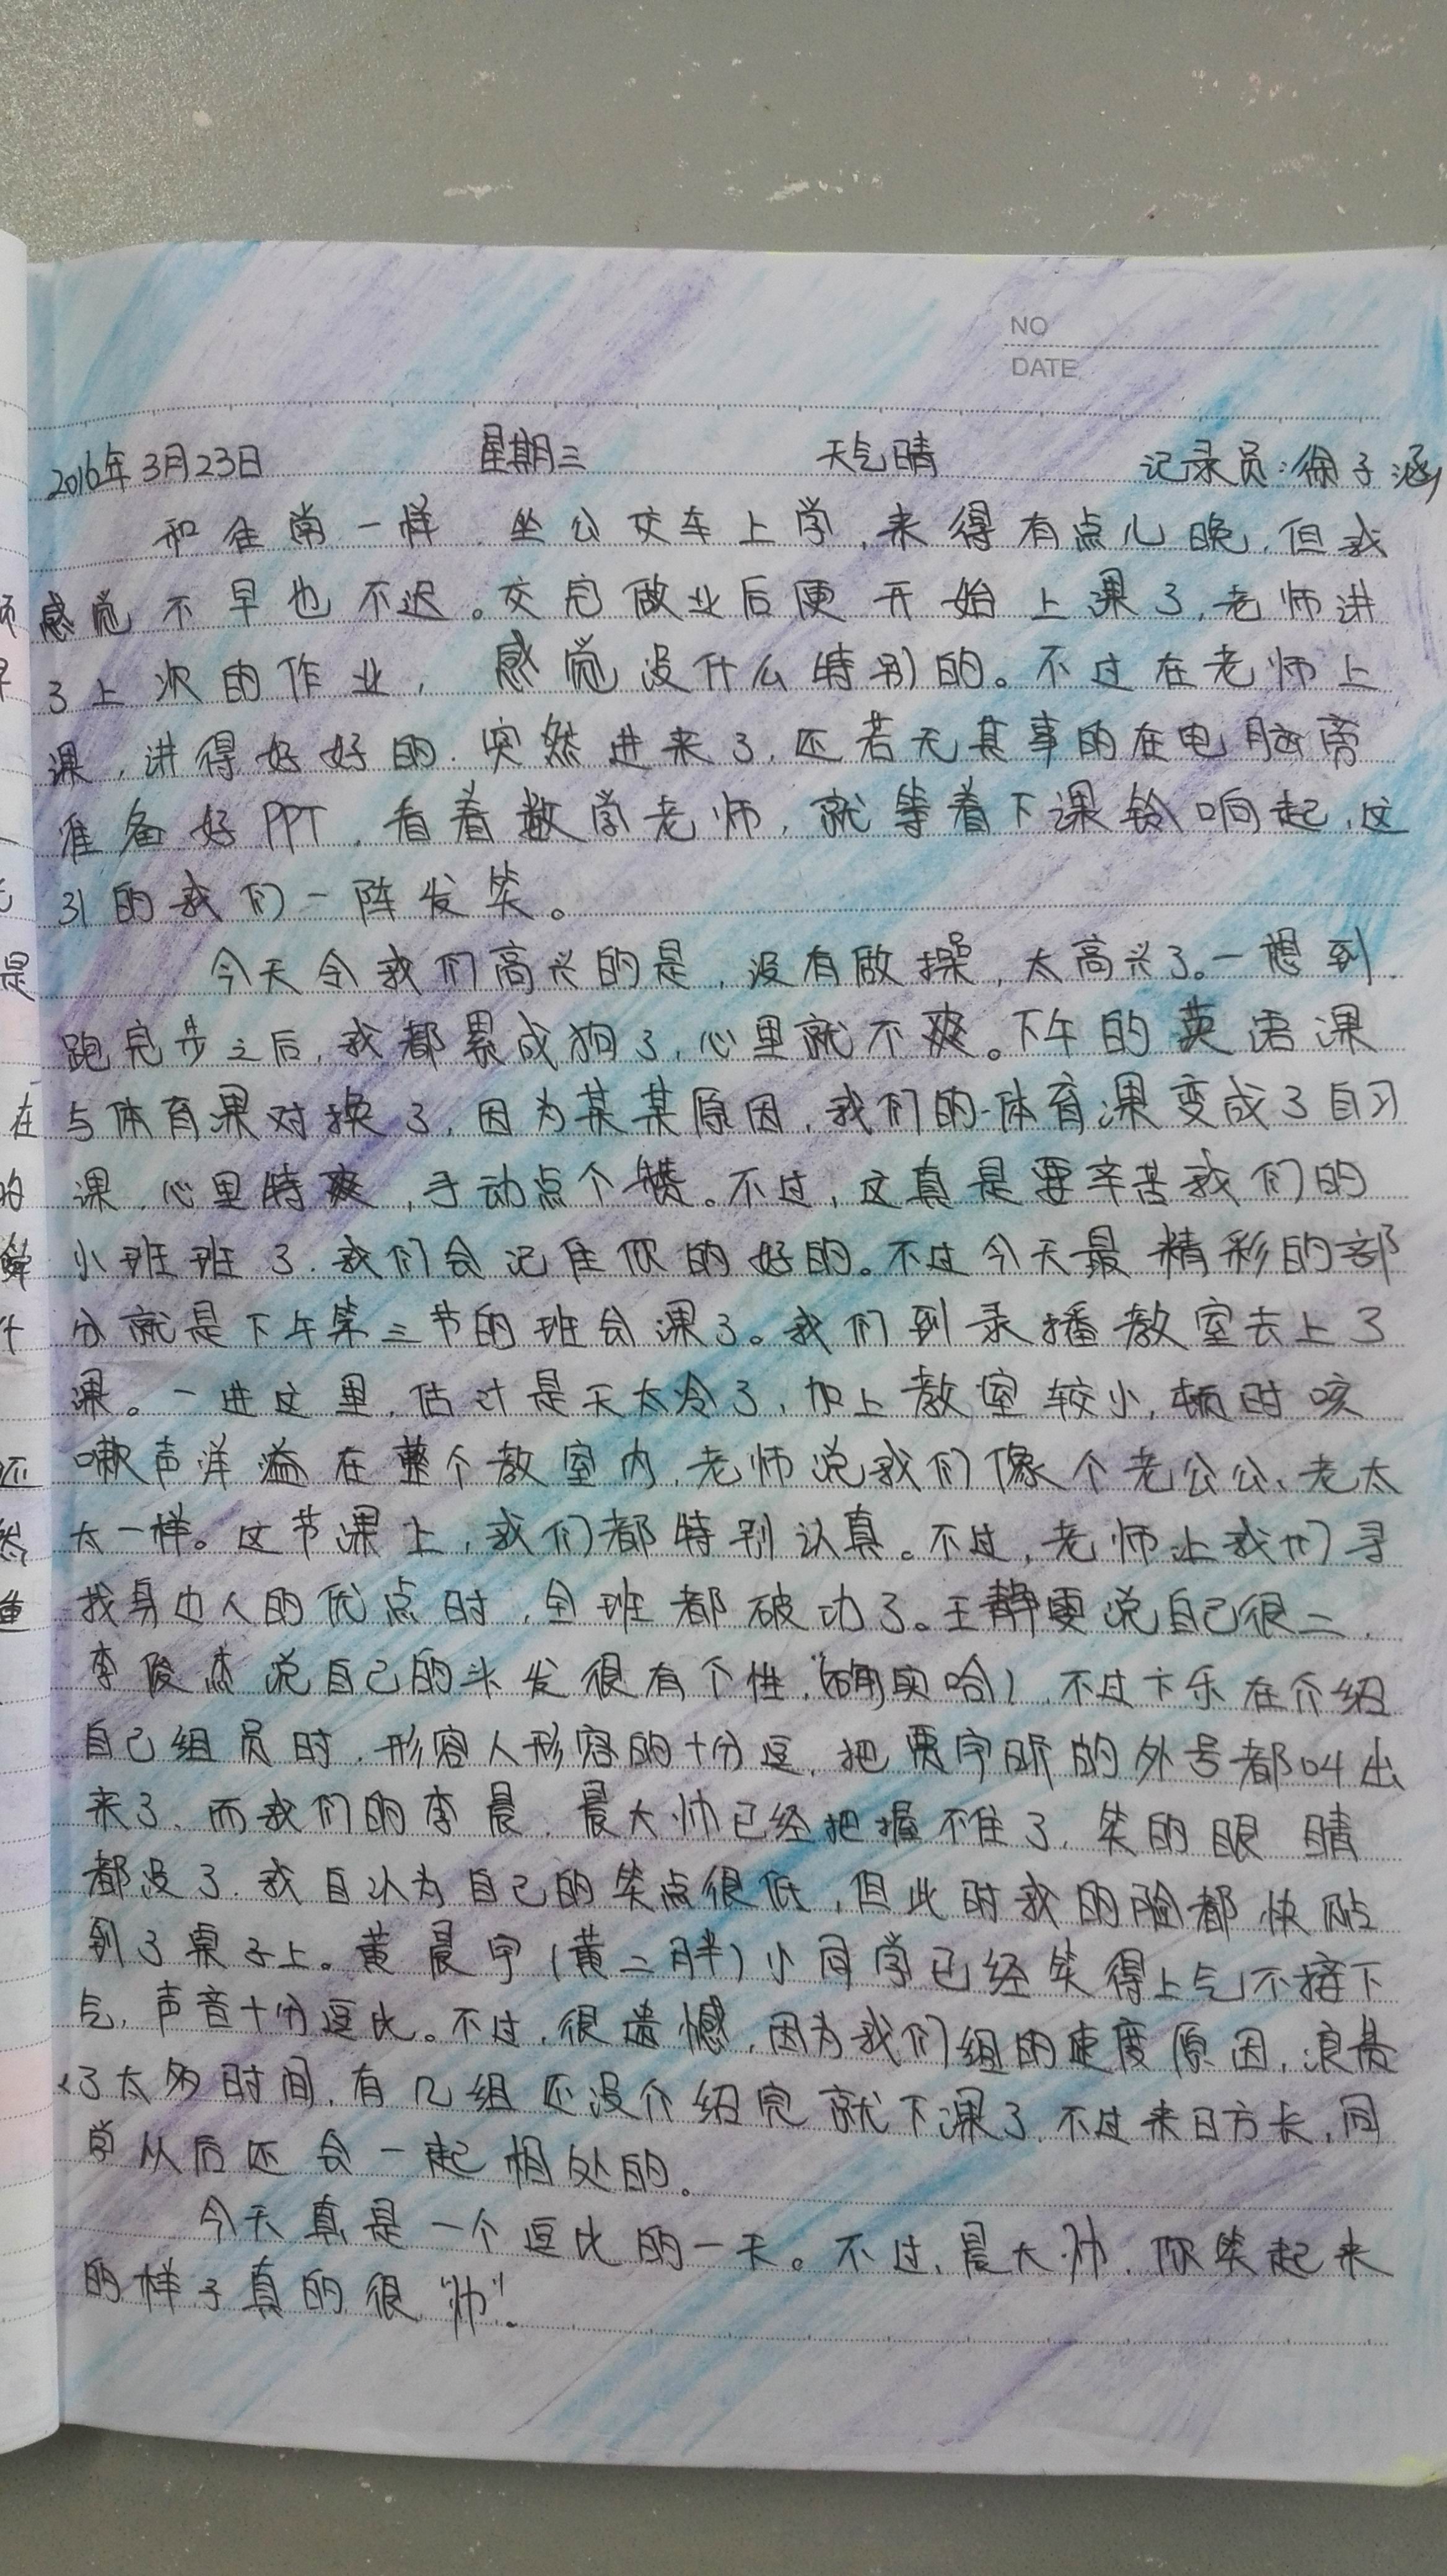 NO
DATE
2016年3月23日 星期三 天气晴 记录员:徐子涵
和往常一样,坐公交车上学,来得有点儿晚,但我
感觉不早也不迟。交完做业后便开始上课了,老师讲
了上次的作业,感觉没什么特别的。不过在老师上
课,讲得好好的.突然进来了,还若无其事的在电脑旁
准备好PPT,看着数学老师,就等着下课铃响起,这
引的我们一阵发笑。
今天令我们高兴的是,没有做操,太高兴了。一想到
跑完步之后,我都累成狗了,心里就不爽。下午的英语课
与体育课对换了,因为某某原因,我们的体育课变成了自习
课,心里特爽,手动点个赞。不过,这真是要辛苦我们的
小班班了.我们会记住你的好的。不过今天最精彩的部
分就是下午第三节的班会课了。我们到录播教室去上了
课。一进这里,估计是天太冷了,加上教室较小,顿时咳
嗽声洋溢在整个教室内,老师说我们像个老公公、老太
太一样。这节课上,我们都特别认真。不过,老师让我们寻
找身边人的优点时,全班都破功了。王静雯说自己很二,
李俊杰说自己的头发很有个性,(确实哈),不过卞乐在介绍
自己组员时,形容人形容的十分逗,把贾宇昕的外号都叫出
来了,而我们的李晨,晨大帅已经把握不住了,笑的眼睛
都没了.我自认为自己的笑点很低,但此时我的脸都快贴
到了桌子上。黄晨宇(黄二胖)小同学已经笑得上气不接下
气,声音十分逗比。不过,很遗憾,因为我们组的速度原因,浪费
了太多时间,有几组还没介绍完就下课了,不过来日方长,同
学从后还会一起相处的。
今天真是一个逗比的一天。不过,晨大帅,你笑起来
的样子真的很“帅”.